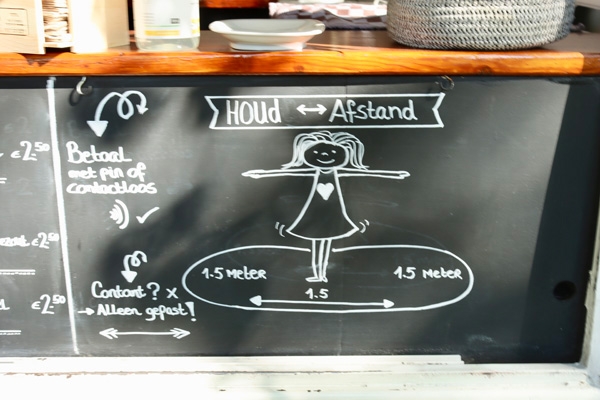 €2.50
€2.50
€2.50
Betaal
met pin of
contactloos
Contant? x
Alleen gepast!
HOUd ↔ Afstand
1.5 MeteR
1.5 MeteR
1.5